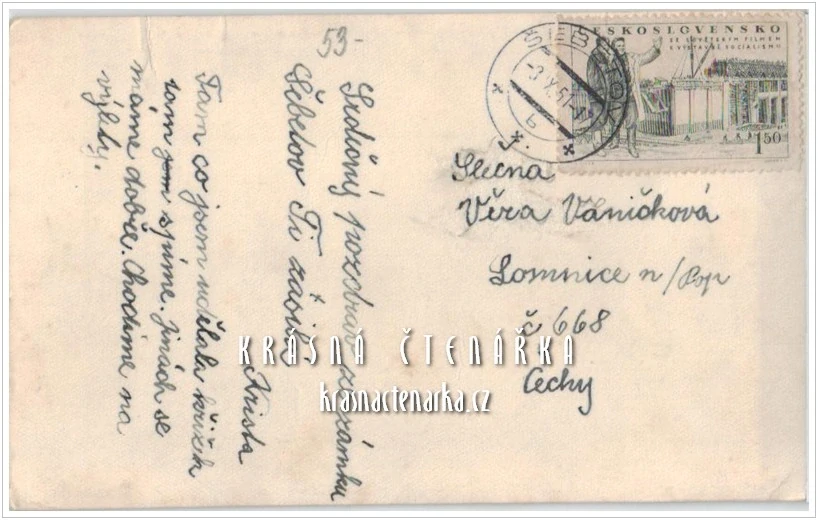 53-
Srdečný pozdrav ze zámku
Šebetov Ti zasílá
Krista
Tam co jsem udělala křížek
tam jsm spíme. Jinách se
máme dobře. Chodíme na
výlety.
ČESKOSLOVENSKO
SE SOVĚTSKÝM FILMEM
K VÝSTAVBĚ SOCIALISMU
1.50
b
Slečna
Věra Vaníčková
Lomnice n/Pop
č 668
Čechy
KRÁSNÁ ČTENÁŘKA
krasnactenarka.cz